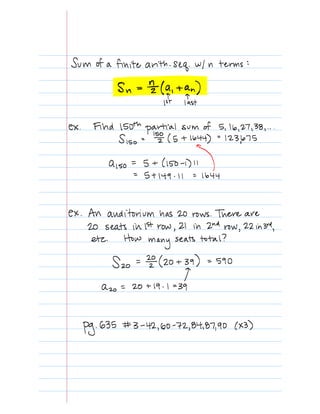 Sum of a finite arith. seq. w/ n terms:
Sn = n/2 (a1 + an)
1st last
ex. Find 150th partial sum of 5, 16, 27, 38, ...
S150 = 150/2 (5 + 1644) = 123,675
a150 = 5 + (150-1)11
= 5 + 149·11 = 1644
ex. An auditorium has 20 rows. There are
20 seats in 1st row, 21 in 2nd row, 22 in 3rd,
etc. How many seats total?
S20 = 20/2 (20 + 39) = 590
a20 = 20 + 19·1 = 39
pg. 635 #3-42, 60-72, 84, 87, 90 (x3)